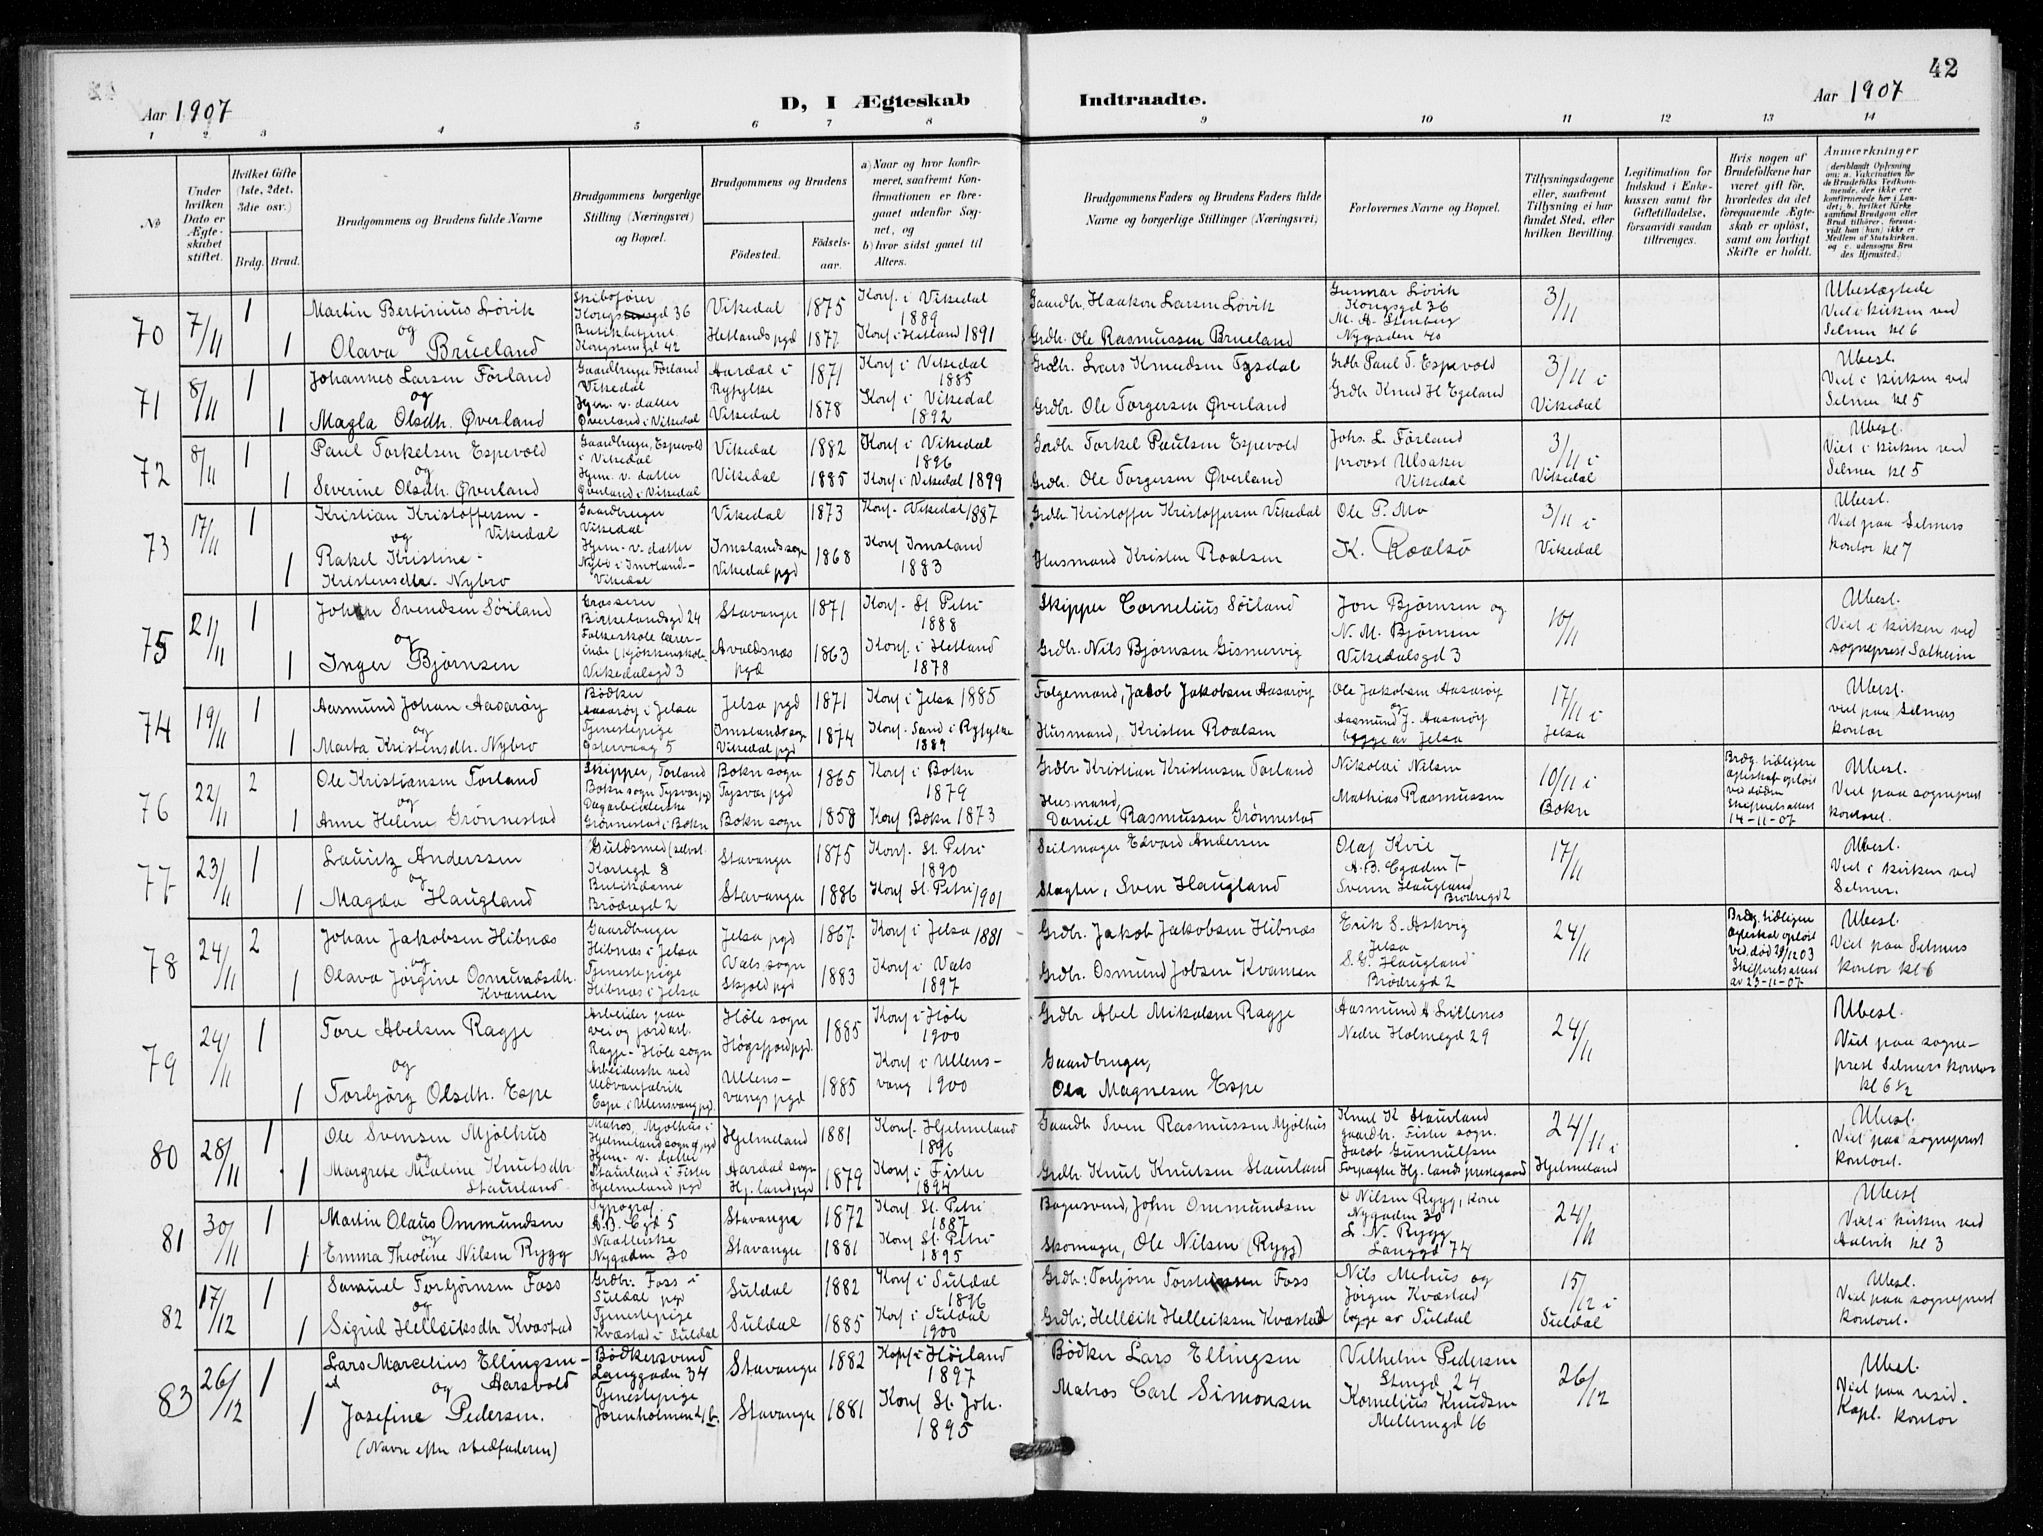 42
Aar 1907
D, I Ægteskab Indtraadte.
Aar 1907
1 2 3 4 5 6 7 8 9 10 11 12 13 14
No
Under hvilken Dato er Ægteskabet stiftet.
Hvilket Gifte (1ste, 2det, 3die osv.)
Brdg. Brud.
Brudgommens og Brudens fulde Navne
Brudgommens borgerlige Stilling (Næringsvei) og Bopæl.
Brudgommens og Brudens
Fødested.
Fødselsaar.
a) Naar og hvor konfirmeret, saafremt Konfirmationen er foregaaet udenfor Sognet, og
b) hvor sidst gaaet til Alters.
Brudgommens Faders og Brudens Faders fulde Navne og borgerlige Stillinger (Næringsvei)
Forlovernes Navne og Bopæl.
Tillysningsdagene eller, saafremt Tillysning ei har fundet Sted, efter hvilken Bevilling.
Legitimation for Indskud i Enkekassen samt for Giftetilladelse, forsaavidt saadan tiltrænges.
Hvis nogen af Brudefolkene har været gift før, hvorledes da det foregaaende Ægteskab er opløst, samt om lovligt Skifte er holdt.
Anmærkninger
(deriblandt Oplysning om: a. Vakcination for de Brudefolks Vedkommende, der ikke ere konfirmerede her i Landet; b. hvilket Kirkesamfund Brudgom eller Brud tilhører, forsaavidt han (hun) ikke er Medlem af Statskirken, og c. udensogns Brudes Hjemsted.)
70 7/11 1 Martin Bertinius Lövik Vikedal 1875 Konf. i Vikedal 1889 Gaardbr. Haakon Larsen Lövik Gunnar Lövik Kongsgd 36 3/11 Ubeslægtede
og
1 Olava Brueland Kongsgd 42 Hetlands pgd 1877 Konf. i Hetland 1891 Grdbr. Ole Rasmussen Brueland M. A. Stenberg Nygaden 40 Viet i kirken ved Selmer kl 6
71 8/11 1 Johannes Larsen Förland Gaardbruger Förland Vikedal Aardal i Ryfylke 1871 Konf i Vikedal 1885 Grdbr. Lars Knudsen Tysdal Grdb Paul T. Espevold 3/11 i Vikedal Ubesl.
og
1 Magla Olsdtr. Øverland Hjem. v. datter Øverland i Vikedal Vikedal 1878 Konf i Vikedal 1892 Grdbr. Ole Torgersen Øverland Grdb Knud H Egeland Viet i kirken ved Selmer kl 5
72 8/11 1 Paul Torkelsen Espevold Gaardbruger, Espevold i Vikedal Vikedal 1882 Konf i Vikedal 1896 Gordbr Torkel Paulsen Espevold Johs. L. Förland 3/11 i Vikedal Ubesl.
og
1 Severine Olsdtr. Øverland Hjem. v. datter Øverland i Vikedal Vikedal 1885 Konf i Vikedal 1899 Grdb. Ole Torgersen Øverland provst Ulsaker Vikedal Viet i kirken ved Selmer kl 5
73 17/11 1 Kristian Kristoffersen - Vikedal Gaardbruger Vikedal Vikedal 1873 Konf. Vikedal 1887 Grdb. Kristoffer Kristoffersen Vikedal Ole P. Mo 3/11 i Vikedal Ubesl.
og
1 Rakel Kristine - Kristensdtr. Nybro Hjem. v. datter Nybro i Imsland - Vikedal Imslandsogn Vikedal pgd 1868 Konf Imsland 1883 Husmand Kristen Roalsen K. Roalsö Viet paa Selmers kontor kl 7
75 21/11 1 Johan Svendsen Söiland Grosserer Birkelandsgd 24 Stavanger 1871 Konf. St Petri 1888 Skipper Cornelius Söiland Jon Bjørnsen og 10/11 Ubesl.
og
1 Inger Bjørnsen Folkeskolelærerinde (kjökkenskole) Vikedalsgd 3 Avaldsnæs pgd 1863 Konf. i Hetland 1878 Grdbr. Nils Bjørnsen Gismervig N. M. Bjørnsen Vikedalsgd 3 Viet i kirken ved sogneprest Solheim
74 19/11 1 Aasmund Johan Aasaröy Bödker Aasaröy i Jelsa Jelsa pgd 1871 Konf i Jelsa 1885 Folgemand, Jakob Jakobsen Aasaröy Ole Jakobsen Aasaröy og 17/11 i Jelsa Ubesl.
og
1 Marta Kristensdtr. Nybro Tjenestepige Östervaag 5 Imslandsogn Vikedal pgd 1874 Konf. Sand i Ryfylke 1889 Husmand, Kristen Roalsen Aasmund J. Aasaröy begge av Jelsa viet paa Selmers kontor
76 22/11 2 Ole Kristiansen Torland Skipper, Torland Bokn sogn Tysvær pgd Bokn sogn Tysvær pgd 1865 Konf i Bokn 1879 Grdbr Kristian Kristensen Torland Nikolai Nilsen 10/11 i Bokn Brdg. tidligere ægteskab oplöst ved döden Skifteretsattest 14-11-07 Ubesl.
og
1 Anne Helene Grönnestad Dagarbeiderske Grönnestad i Bokn Bokn sogn 1858 Konf Bokn 1873 Husmand, Daniel Rasmussen Grönnestad Mathias Rasmussen Viet paa sogneprest kontoret.
77 23/11 1 Lauritz Anderssen Guldsmed (selvst. Korsgd 8 Stavanger 1875 Konf. St. Petri 1890 Seilmager Edvard Andersen Olaf Kvie A. B. Egaden 7 17/11 Ubesl.
og
1 Magda Haugland Butikdame Brödregd 2 Stavanger 1886 Konf St. Petri 1901 Slagter, Sven Haugland Svenn Haugland Brödregd 2 Viet i kirken ved Selmer.
78 24/11 2 Johan Jakobsen Hibnæs Gaardbruger Hibnæs i Jelsa Jelsa pgd 1867 Konf i Jelsa 1881 Grdbr. Jakob Jakobsen Hibnæs Erik S. Askvig Jelsa 24/11 Brdg. tidligere ægteskab oplöst ved död 29/12 03 Skifteretsattest av 23-11-07 Ubesl.
og
1 Olava Jörgine Osmundsdtr. Kvamen Tjenestepige Hibnæs i Jelsa Vats sogn Skjold pgd 1883 Konf i Vats 1897 Grdbr. Osmund Jobsen Kvamen S. G. Haugland Brödregd 2 Viet paa Selmers kontor kl 6
79 24/11 1 Tore Abelsen Ragje Arbeider paa vei og jordarb. Ragje - Höle sogn Höle sogn Högsfjord pgd. 1885 Konf i Höle 1900 Grdbr Abel Mikalsen Ragje Aasmund A Lillenes Nedre Holmegd 29 24/11 Ubesl.
og
1 Torbjörg Olsdtr. Espe Arbeiderske ved Uldvarefabrik Espe i Ullensvang pgd. Ullensvangs pgd 1885 Konf i Ullensvang 1900 Gaardbruger, Ola Magnesen Espe Viet paa sogneprest Selmers kontor kl 6 1/2
80 28/11 1 Ole Svensen Mjölhus Matros, Mjölhus i Hjelmeland sogn & pgd Hjelmeland 1881 Konf. Hjelmeland 1896 Gaardb Sven Rasmussen Mjölhus Knut K Staurland gaardbr. Fister sogn. 24/11 i Hjelmeland Ubesl.
og
1 Margrete Maline Knutsdtr. Staurland Hjem. v. datter Staurland i Fister Hjelmeland pgd Aardal sogn Hj. land pgd 1879 Konf i Fister 1894 Grdbr. Knut Knutsen Staurland Jacob Gunnulfsen Forpagter Hj. lands prestegaard Viet paa sogneprest kontoret.
81 30/11 1 Martin Olaus Ommundsen Typograf A.B. Egd 5 Stavanger 1872 Konf St. Petri 1887 Bagersvend, John Ommundsen O Nilsen Rygg, kone Nygaden 30 24/11 Ubesl
og
1 Emma Theoline Nilsen Rygg Naatlerske Nygaden 30 Stavanger 1881 Konf St. Petri 1895 Skomager, Ole Nilsen (Rygg) L. N. Rygg Langgd 74 Viet i kirken ved Aalvik kl 3
82 17/12 1 Samuel Torbjörnsen Foss Grdbr: Foss i Suldal pgd Suldal 1882 Konf i Suldal 1896 Grdb: Torbjörn Torsteinsen Foss Nils Mehus og 15/12 i Suldal Ubesl.
og
1 Sigrid Helleiksdtr Kvæstad Tjenestepige Kvæstad i Suldal Suldal 1885 Konf i Suldal 1900 Grdbr: Helleik Helleiksen Kvæstad Jörgen Kvæstad begge av Suldal Viet paa sogneprest kontoret.
83 26/12 1 Lars Marcelius Ellingsen - Aarsvold Bödkersvend Langgaden 34 Stavanger 1882 Konf i Höiland 1897 Bödker Lars Ellingsen Vilhelm Pedersen Stengd 24 26/12 Ubesl.
og
1 Josefine Pedersen. Tjenestepige Jorenholmen 21b Stavanger 1881 Konf St. Joh. 1895 Matros Carl Simonsen Kornelius Knudsen Mellemgd 16 Viet paa resid. Kapl. kontor
(Navn efter stedfaderen)